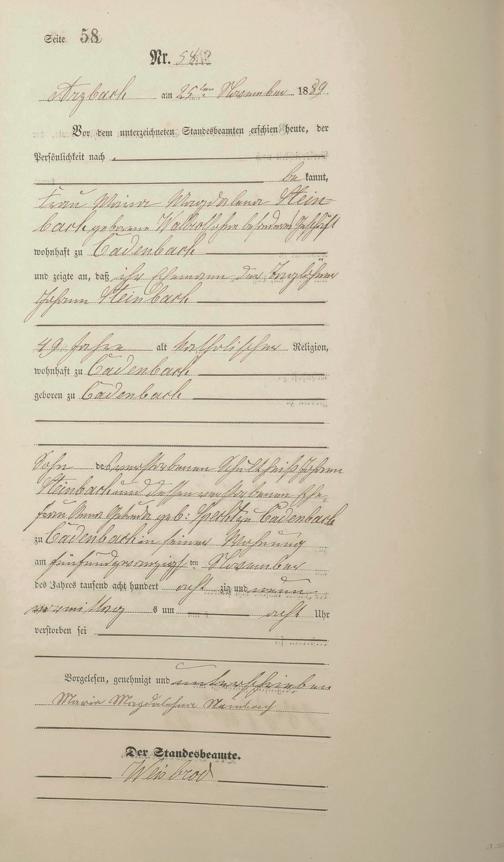 Seite 58
Nr.
Arzbach am 25ten November 1889.
Vor dem unterzeichneten Standesbeamten erschien heute, der
Persönlichkeit nach
be kannt,
Frau Maria Magdalena Stein-
bach geborene
wohnhaft zu Cadenbach
und zeigte an, daß ihr Ehemann der Taglöhner
Johann Steinbach
49 Jahre alt katholischer Religion,
wohnhaft zu Cadenbach
geboren zu Cadenbach
Sohn des verstorbenen Schultheiß Johann
Steinbach und dessen verstorbenen Ehe-
frau Anna geb: Specht zu Cadenbach
zu Cadenbach in seiner Wohnung
am fünfundzwanzigsten November
des Jahres tausend acht hundert acht zig und neun
vormittags um acht Uhr
verstorben sei
Vorgelesen, genehmigt und unterschrieben
Maria Magdalena Steinbach
Der Standesbeamte.
Weinbrod